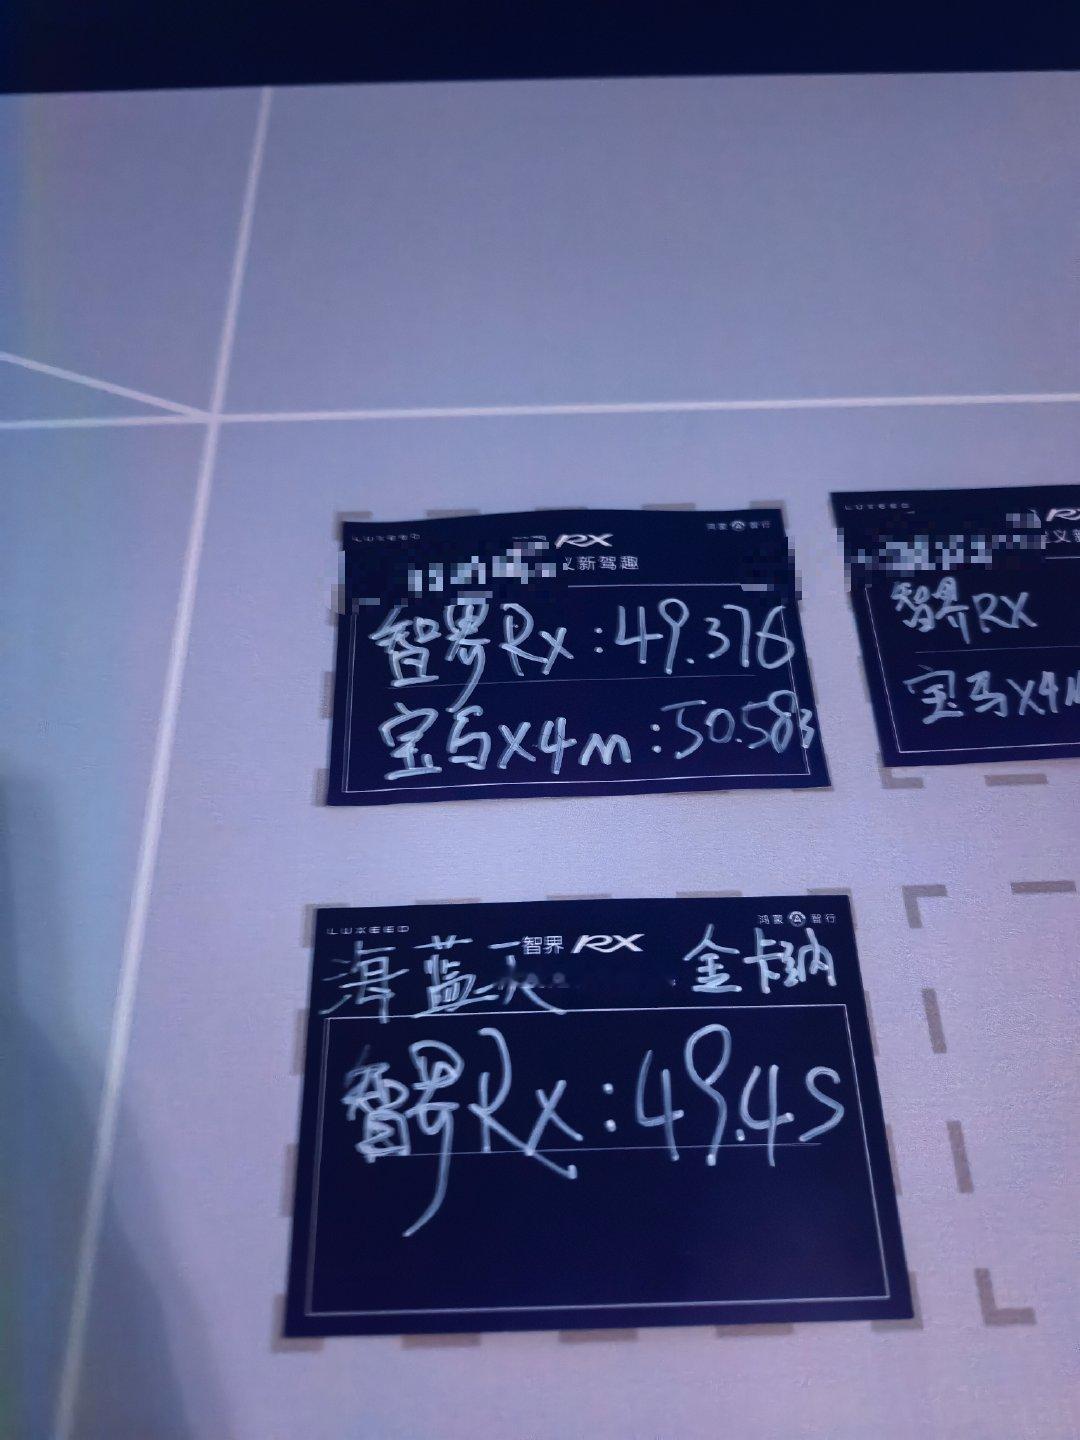 LUXEED RX 鸿蒙智行
义新驾趣
智界RX:49.376
宝马X4m:50.583
LUXEED RX
义新
智界RX
宝马X4M
LUXEED 智界 RX 鸿蒙智行
海蓝天 金卡纳
智界RX:49.4S